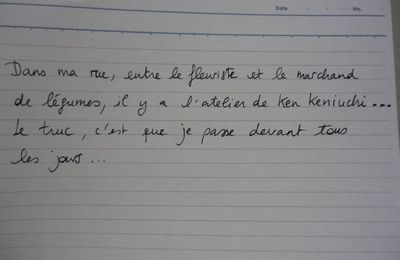 Date
No.
Dans ma rue, entre le fleuriste et le marchand
de légumes, il y a l'atelier de Ken Keniuchi...
Le truc, c'est que je passe devant tous
les jours...